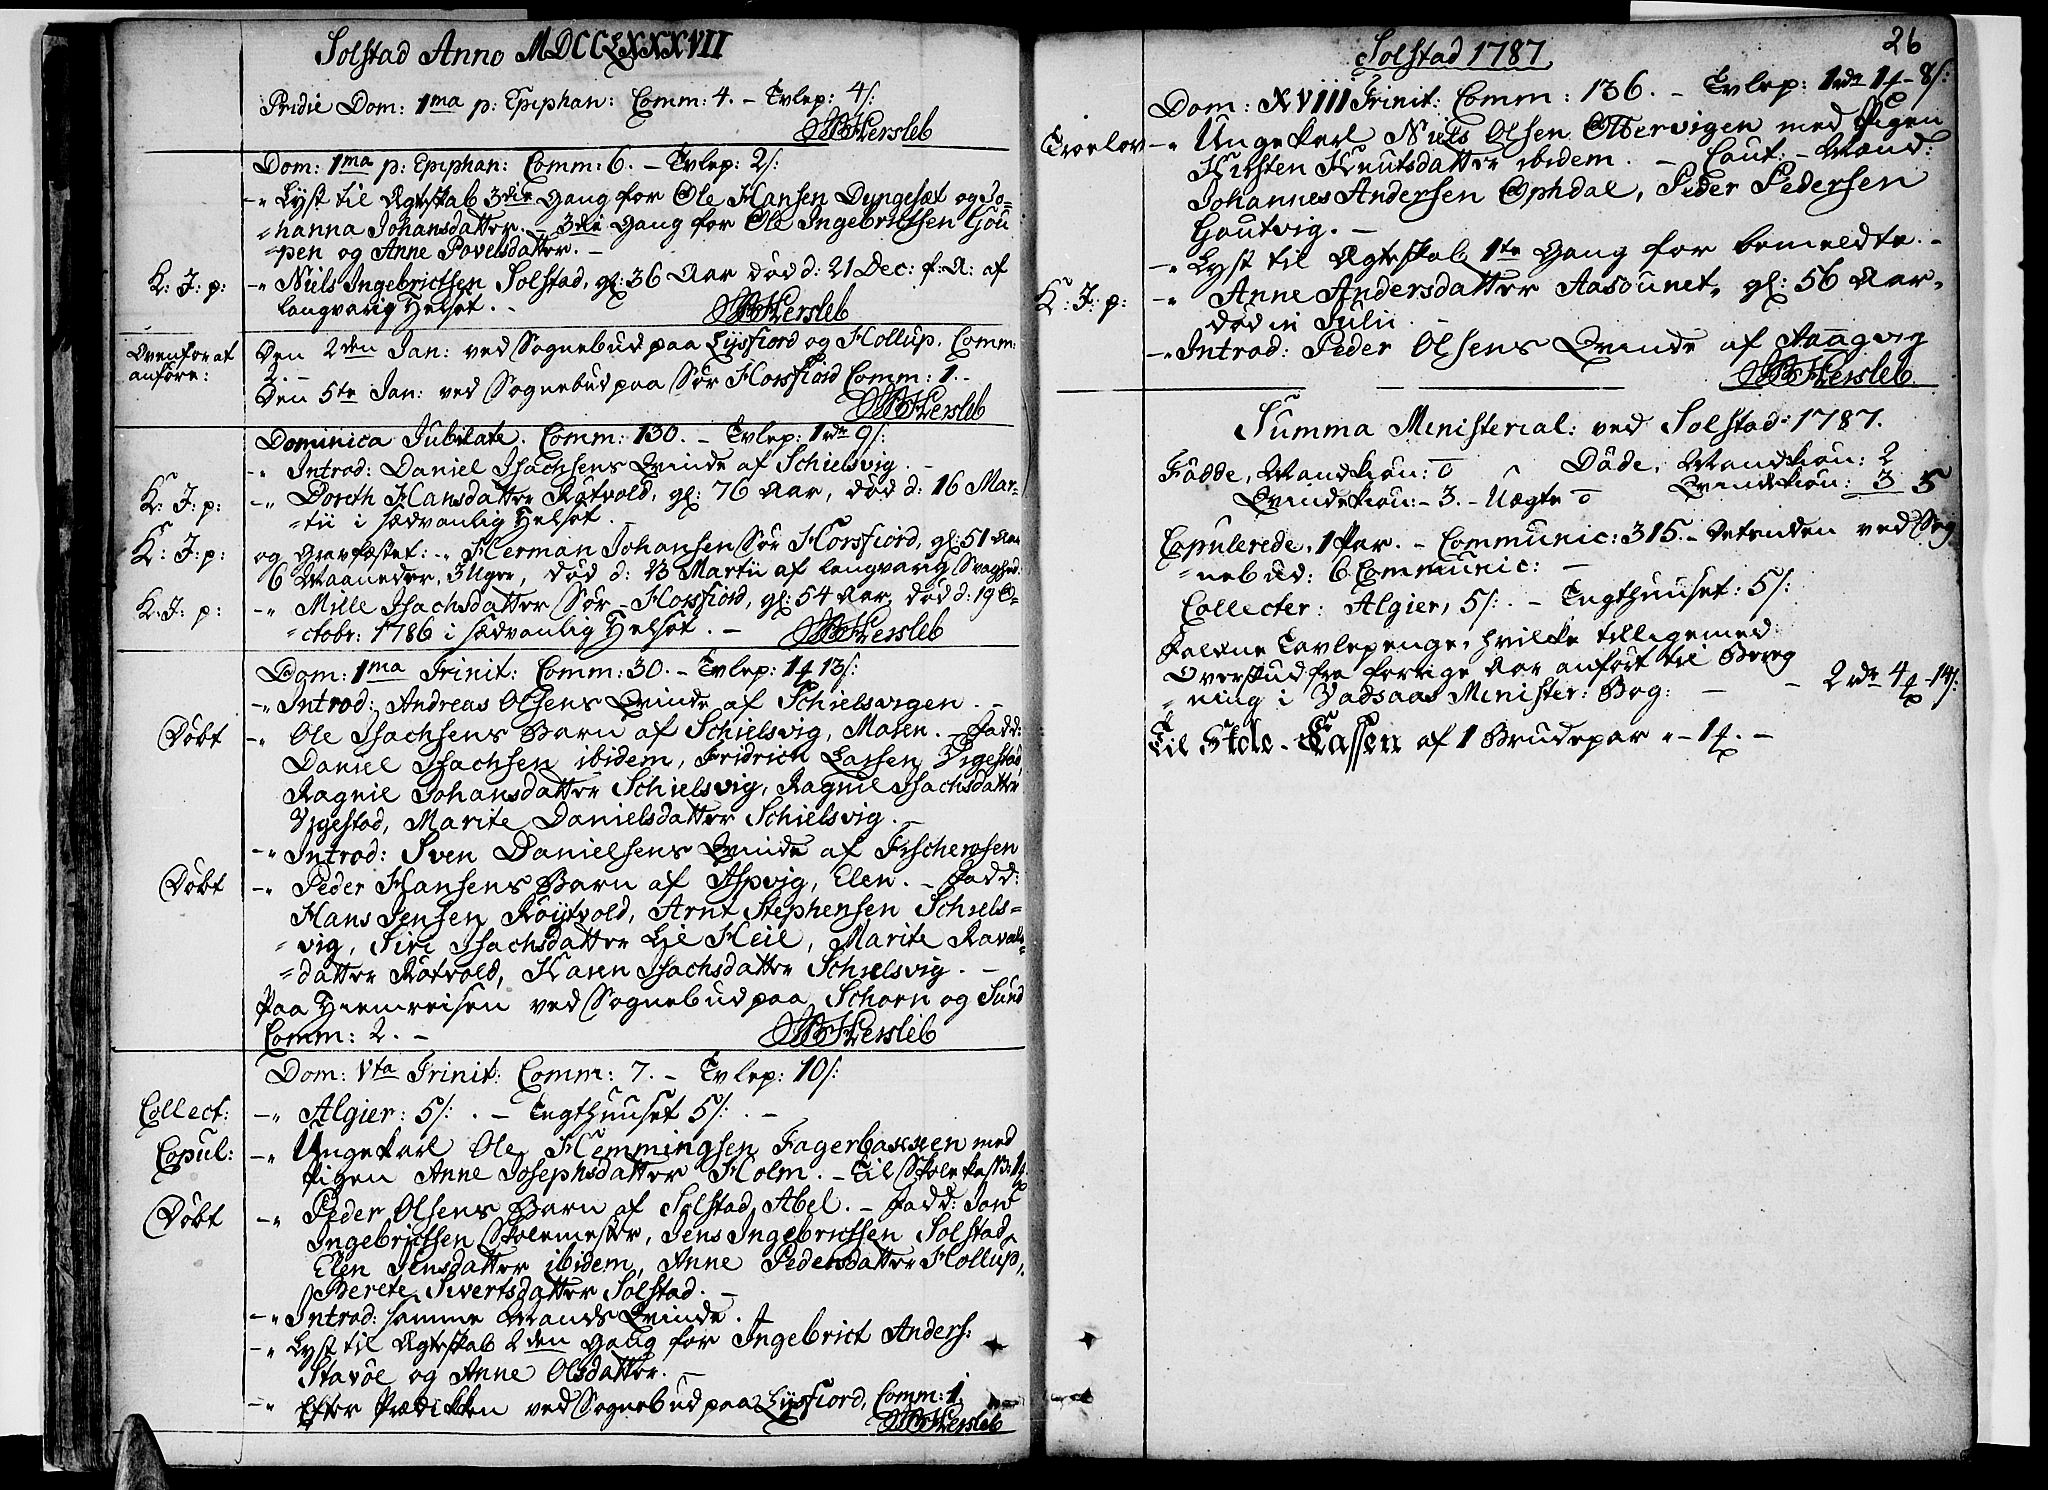 Solstad Anno MDCCLXXXVII
Pridie Dom: 1ma p: Epiphan: Comm: 4. – Tvlep: 4/:
Hersleb
Dom: 1ma p: Epiphan: Comm: 6. – Tvlep: 2/:
–" Lyst til Ægteskab 3die Gang for Ole Hansen Dyngesæt og Jo=
=hanna Johansdatter. – 3die Gang for Ole Ingebrictsen Gou
=pen og Anne Povelsdatter. –
K: J: p: –" Niels Ingebrictsen Solstad, gl: 36 Aar død d: 21 Dec: f: A: af
langvarig Helsot. –
Hersleb
Ovenfor at
anføre:
Den 2den Jan: ved Sognebud paa Lysfiord og Hollup. Comm:
2. –
Den 5te Jan: ved Sognebud paa Sør Horsfiord Comm: 1. –
Hersleb
Dominica Jubilate. Comm: 130. – Tvlep: 1 rdr 9/:
–" Introd: Daniel Isachsens Qvinde af Schielsvig. –
K: J: p: –" Doreth Hansdatter Røtvold, gl: 76 Aar, død d: 16 Mar=
=tii i sædvanlig Helsot.
K: J: p: og Gravfæstet: –" Herman Johansen Sør Horsfiord, gl: 51 Aar
6 Maaneder, 3 Uger, død d: 23 Martii af langvarig Svaghed:
K: J: p: –" Mille Isachsdatter Sør-Horsfiord, gl: 54 Aar død d: 19 O=
=ctobr: 1786 i sædvanlig Helsot. –
Hersleb
Dom: 1ma Trinit: Comm: 30. – Tvlep: 1 13/:
–" Introd: Andreas Olsens Qvinde af Schielsvigen. –
Døbt –" Ole Isachsens Barn af Schielsvig, Maren. – Fadd:
Daniel Isachsen ibidem, Fridrich Larsen Vigestad
Ragnil Johansdatter Schielsvig, Ragnil Isachsdatter
Vigestad, Marite Danielsdatter Schielsvig. –
–" Introd: Sven Danielsens Qvinde af Fischerosen
Døbt –" Peder Hansens Barn af Aspvig, Elen. – Fadd:
Hans Jensen Røytvold, Arnt Stephensen Schiels=
=vig, Siri Isachsdatter Lie Heil, Marite Ravals=
=datter Røtvold, Karen Isachsdatter Schielsvig. –
Paa Hiemreisen ved Sognebud paa Schorn og Sund
Comm: 2. –
Hersleb
Dom: Vta Trinit: Comm: 7. – Tvlep: 10/:
Collect: –" Algier: 5/: . – Tugthuuset 5/: . –
Copul: –" Ungekarl Ole Hemmingsen Fagerbakken med
Pigen Anne Josephsdatter Holm. – Til Skolekassen 1
Døbt –" Peder Olsens Barn af Solstad Abel. – Fadd: Jon
Ingebrictsen Skolemester, Jens Ingebrictsen Solstad,
Elen Jensdatter ibidem, Anne Pedersdatter Hollup,
Berete Sivertsdatter Solstad. –
–" Introd: samme Mands Qvinde. –
–" Lyst til Ægteskab 2den Gang for Ingebrict Anders:
Stavøe og Anne Olsdatter. –
–" Efter Prædikken ved Sognebud paa Lysfiord, Comm: 1
Hersleb
Solstad 1787
26
Dom: XVIII Trinit: Comm: 136. – Tvlep: 1 rdr 1 – 8/:
Troelov –" Ungekarl Niels Olsen Ottervigen med Pigen
Kirsten Knutsdatter ibidem. – Caut. – Mænd:
Johannes Andersen Ophdal, Peder Pedersen
Goutvig. –
–" Lyst til Ægteskab 1te Gang for bemeldte. –
K: J: p: –" Anne Andersdatter Aasounet, gl: 56 Aar,
død in Julii
–" Introd: Peder Olsens Qvinde af Aaagvig
Hersleb
Summa Ministerial: ved Solstad 1787.
Fødde, Mandkiøn: 0 Døde, Mandkiøn: 2
Qvindekiøn: – 3. – Uægte 0 Qvindekiøn: 3 5
Copulerede, 1 Par. – Communic: 315. – desuden ved Sog
=nebud: 6 Communic: –
Collecter: Algier, 5/: . – Tugthuuset: 5/:
Faldne Tavlepenge, hvilke tilligemed
Overskud fra forrige Aar anført til Bereg
=ning i Vadsaas Minister: Bog: – – 2 rdr 4 – 14/:
Til Skole-Cassen af 1 Brudepar " – 1 . –